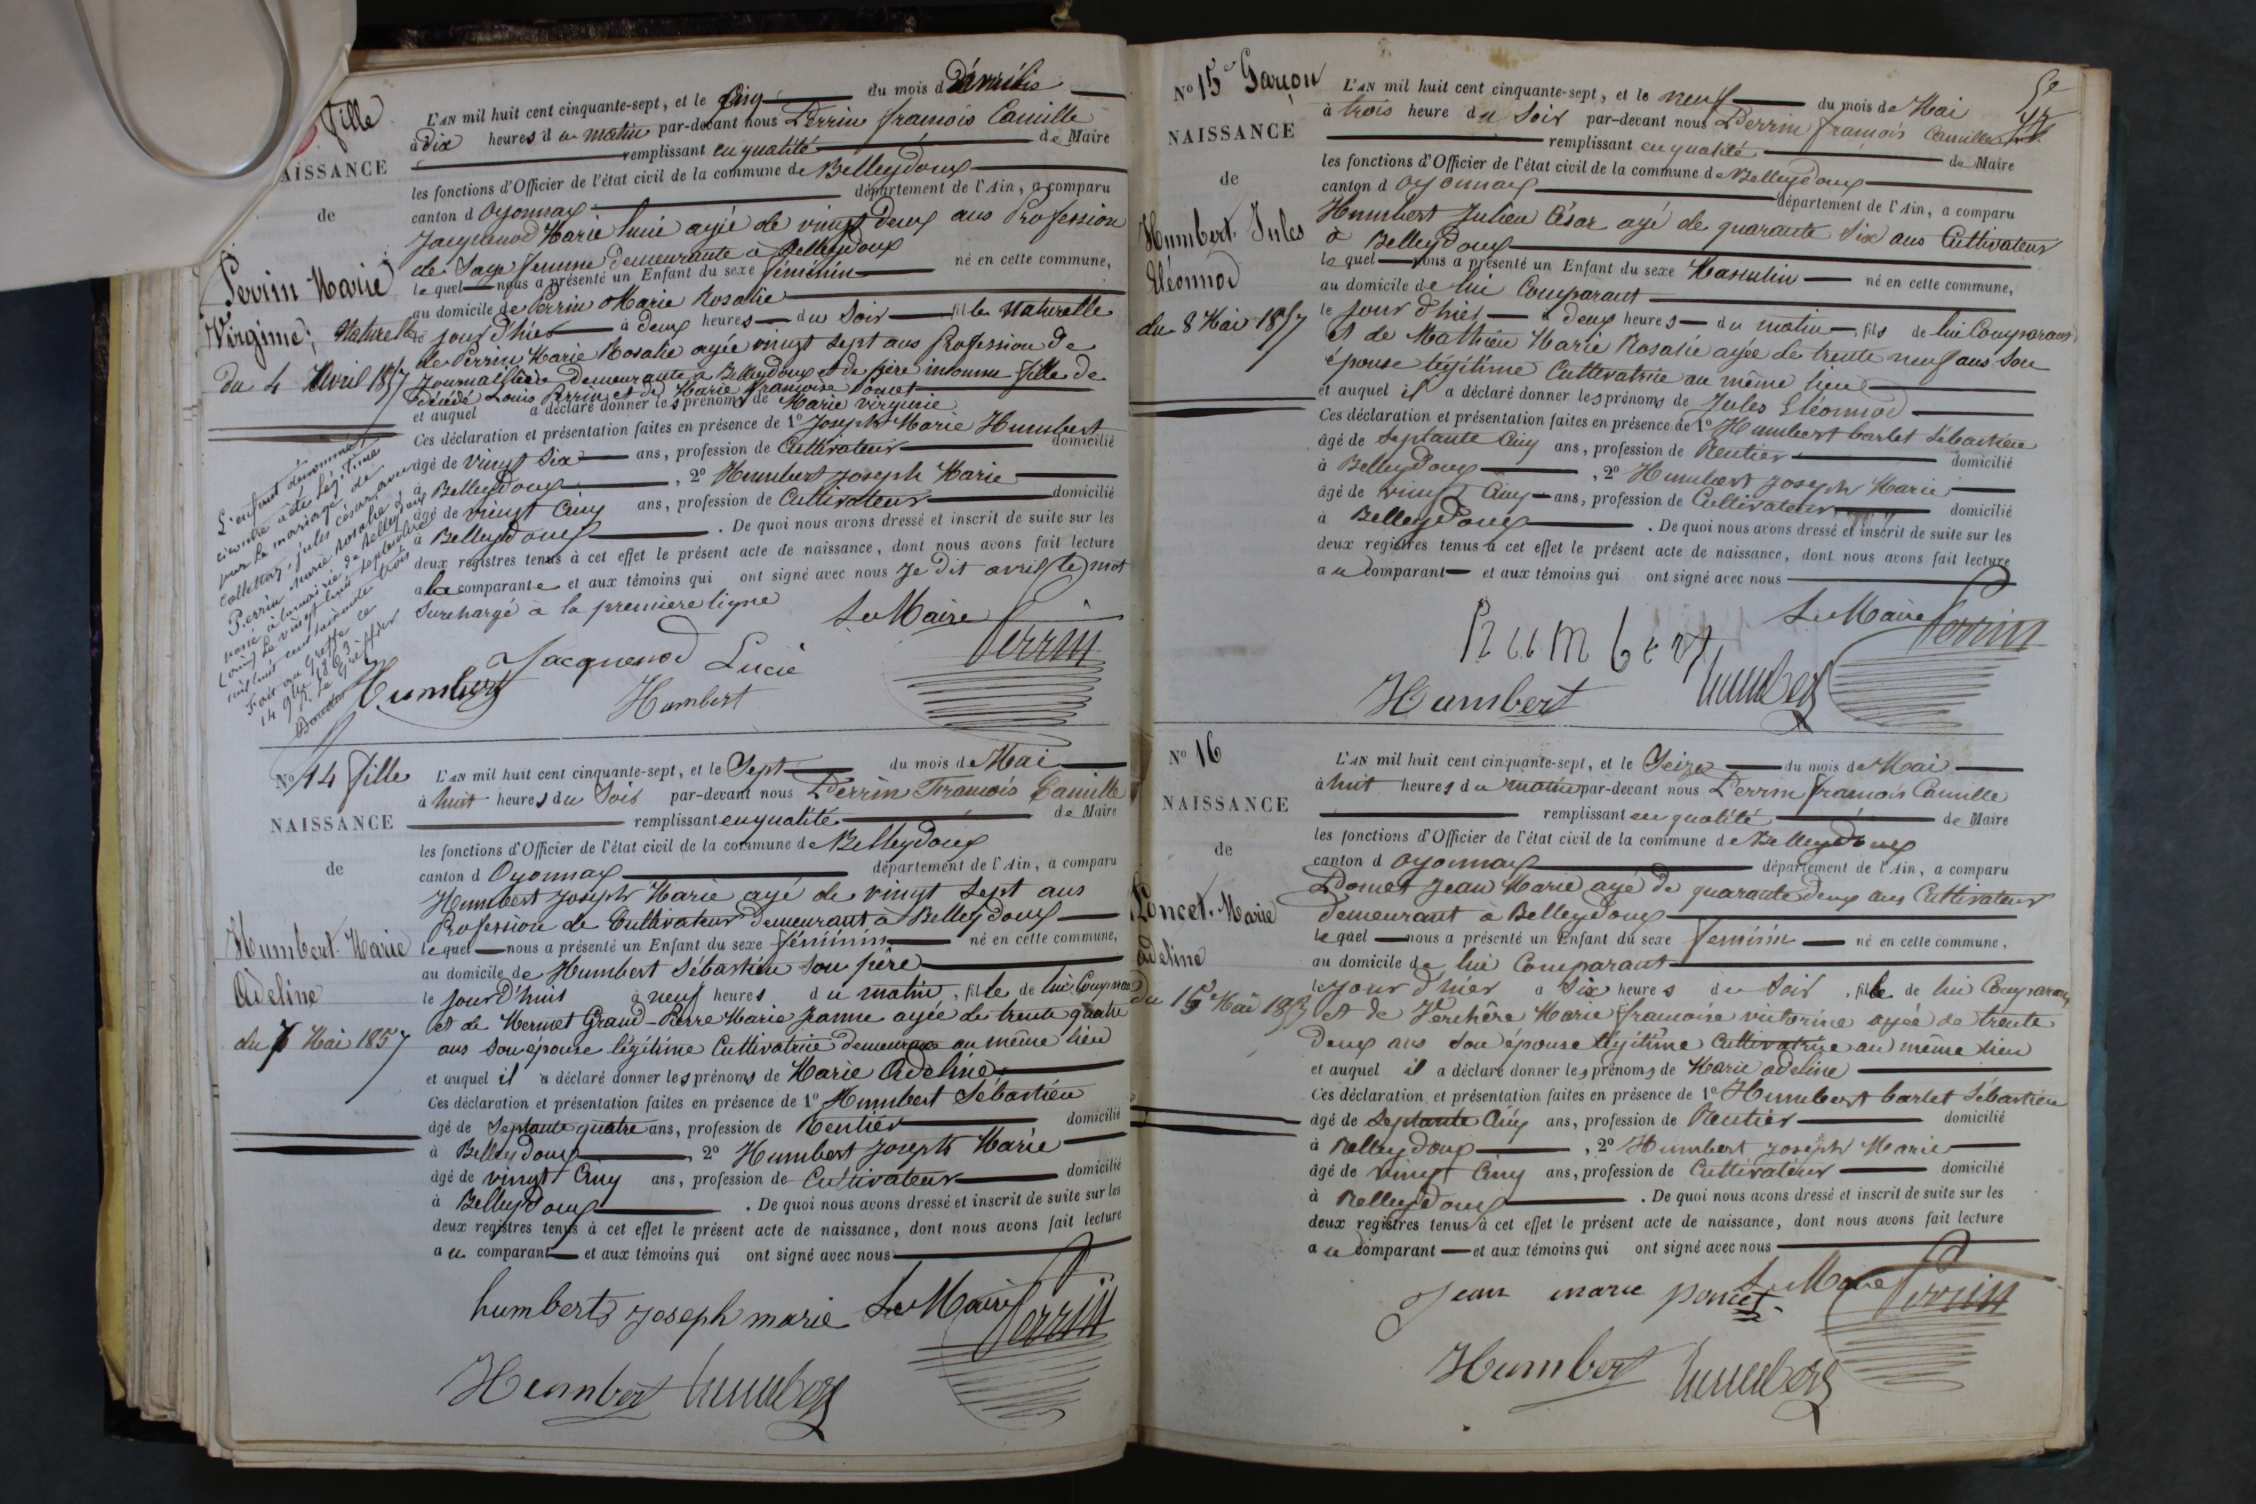 Fille
NAISSANCE
de
Perrin Marie
Virginie, Naturelle
du 4 Avril 1857
L'enfant dénommé
ci contre a été légitimé
par le mariage de
Collettaz, jules césar, avec
Perrin Marie Rosalie
passé à la mairie de Belleydoux
(ain) le vingt huit septembre
mil huit cent soixante trois
Fait au Greffe ce
14 9bre 1863
Le Greffier
L'AN mil huit cent cinquante-sept, et le Cinq du mois d'avril
à dix heures du matin par-devant nous Perrin françois Camille
remplissant en qualité de Maire
les fonctions d'Officier de l'état civil de la commune de Belleydoux
canton d Oyonnax département de l'Ain, a comparu
Jacquenod Marie lucie agée de vingt deux ans Profession
de Sage femme demeurante à Belleydoux
lequel nous a présenté un Enfant du sexe féminin né en cette commune,
au domicile de Perrin Marie Rosalie
le jour d'hier à deux heures du Soir fille Naturelle
de Perrin Marie Rosalie agée vingt sept ans Profession de
Journalière demeurante à Belleydoux et de père inconnu fille de
décédé Louis Perrin et de Marie françoise Poncet
et auquel a déclaré donner les prénoms de Marie virginie
Ces déclaration et présentation faites en présence de 1º Joseph Marie Humbert
âgé de vingt Six ans, profession de Cultivateur domicilié
à Belleydoux, 2º Humbert Joseph Marie
âgé de vingt Cinq ans, profession de Cultivateur domicilié
à Belleydoux. De quoi nous avons dressé et inscrit de suite sur les
deux registres tenus à cet effet le présent acte de naissance, dont nous avons fait lecture
a la comparante et aux témoins qui ont signé avec nous Je dit avril (le) mot
Surchargé à la premiere ligne
Le Maire
Perrin
Jacquenod Lucie
Humbert
Humbert
Nº 14 fille
NAISSANCE
de
Humbert Marie
Adeline
du 7 Mai 1857
L'AN mil huit cent cinquante-sept, et le Sept du mois de Mai
à huit heures du Soir par-devant nous Perrin François Camille
remplissant en qualité de Maire
les fonctions d'Officier de l'état civil de la commune de Belleydoux
canton d Oyonnax département de l'Ain, a comparu
Humbert Joseph Marie agé de vingt Sept ans
Profession de Cultivateur demeurant à Belleydoux
lequel nous a présenté un Enfant du sexe féminin né en cette commune,
au domicile de Humbert Sébastien Son père
le jour d'hui à neuf heures du matin, fille de lui Comparant
et de Mermet Grand-Pierre Marie Jeanne agée de trente quatre
ans Son épouse légitime Cultivatrice demeurant au même lieu
et auquel il a déclaré donner les prénoms de Marie Adeline
Ces déclaration et présentation faites en présence de 1º Humbert Sébastien
âgé de Septante quatre ans, profession de Rentier domicilié
à Belleydoux, 2º Humbert Joseph Marie
âgé de vingt Cinq ans, profession de Cultivateur domicilié
à Belleydoux. De quoi nous avons dressé et inscrit de suite sur les
deux registres tenus à cet effet le présent acte de naissance, dont nous avons fait lecture
a u comparant et aux témoins qui ont signé avec nous
humbert joseph marie Le Maire Perrin
Humbert humbert
Nº 15 Garçon
NAISSANCE
de
Humbert Jules
Eléonnod
du 8 Mai 1857
L'AN mil huit cent cinquante-sept, et le neuf du mois de Mai
à trois heure du Soir par-devant nous Perrin françois Camille
remplissant en qualité de Maire
les fonctions d'Officier de l'état civil de la commune de Belleydoux
canton d Oyonnax département de l'Ain, a comparu
Humbert Julien César agé de quarante Six ans Cultivateur
à Belleydoux
lequel nous a présenté un Enfant du sexe Masculin né en cette commune,
au domicile de lui Comparant
le jour d'hier à deux heures du matin, fils de lui Comparant
et de Mathieu Marie Rosalie agée de trente neuf ans Son
épouse légitime Cultivatrice au même lieu
et auquel il a déclaré donner les prénoms de Jules Eléonnod
Ces déclaration et présentation faites en présence de 1º Humbert barlet Sébastien
âgé de Septante Cinq ans, profession de Rentier domicilié
à Belleydoux, 2º Humbert Joseph Marie
âgé de vingt Cinq ans, profession de Cultivateur domicilié
à Belleydoux. De quoi nous avons dressé et inscrit de suite sur les
deux registres tenus à cet effet le présent acte de naissance, dont nous avons fait lecture
a u comparant et aux témoins qui ont signé avec nous
Le Maire Perrin
humbert
Humbert humbert
Nº 16
NAISSANCE
de
Poncet Marie
adeline
du 15 Mai 1857
L'AN mil huit cent cinquante-sept, et le Seize du mois de Mai
à huit heures du matin par-devant nous Perrin françois Camille
remplissant en qualité de Maire
les fonctions d'Officier de l'état civil de la commune de Belleydoux
canton d Oyonnax département de l'Ain, a comparu
Poncet Jean Marie agé de quarante deux ans Cultivateur
demeurant à Belleydoux
lequel nous a présenté un Enfant du sexe feminin né en cette commune,
au domicile de lui Comparant
le jour d'hier à Six heures du Soir, fille de lui Comparant
et de Verchère Marie françoise victorine agée de trente
deux ans Son épouse légitime Cultivatrice au même lieu
et auquel il a déclaré donner les prénoms de Marie adeline
Ces déclaration et présentation faites en présence de 1º Humbert barlet Sébastien
âgé de Septante Cinq ans, profession de Rentier domicilié
à Belleydoux, 2º Humbert Joseph Marie
âgé de vingt Cinq ans, profession de Cultivateur domicilié
à Belleydoux. De quoi nous avons dressé et inscrit de suite sur les
deux registres tenus à cet effet le présent acte de naissance, dont nous avons fait lecture
a u comparant et aux témoins qui ont signé avec nous
Jean marie poncet Le Maire Perrin
Humbert humbert